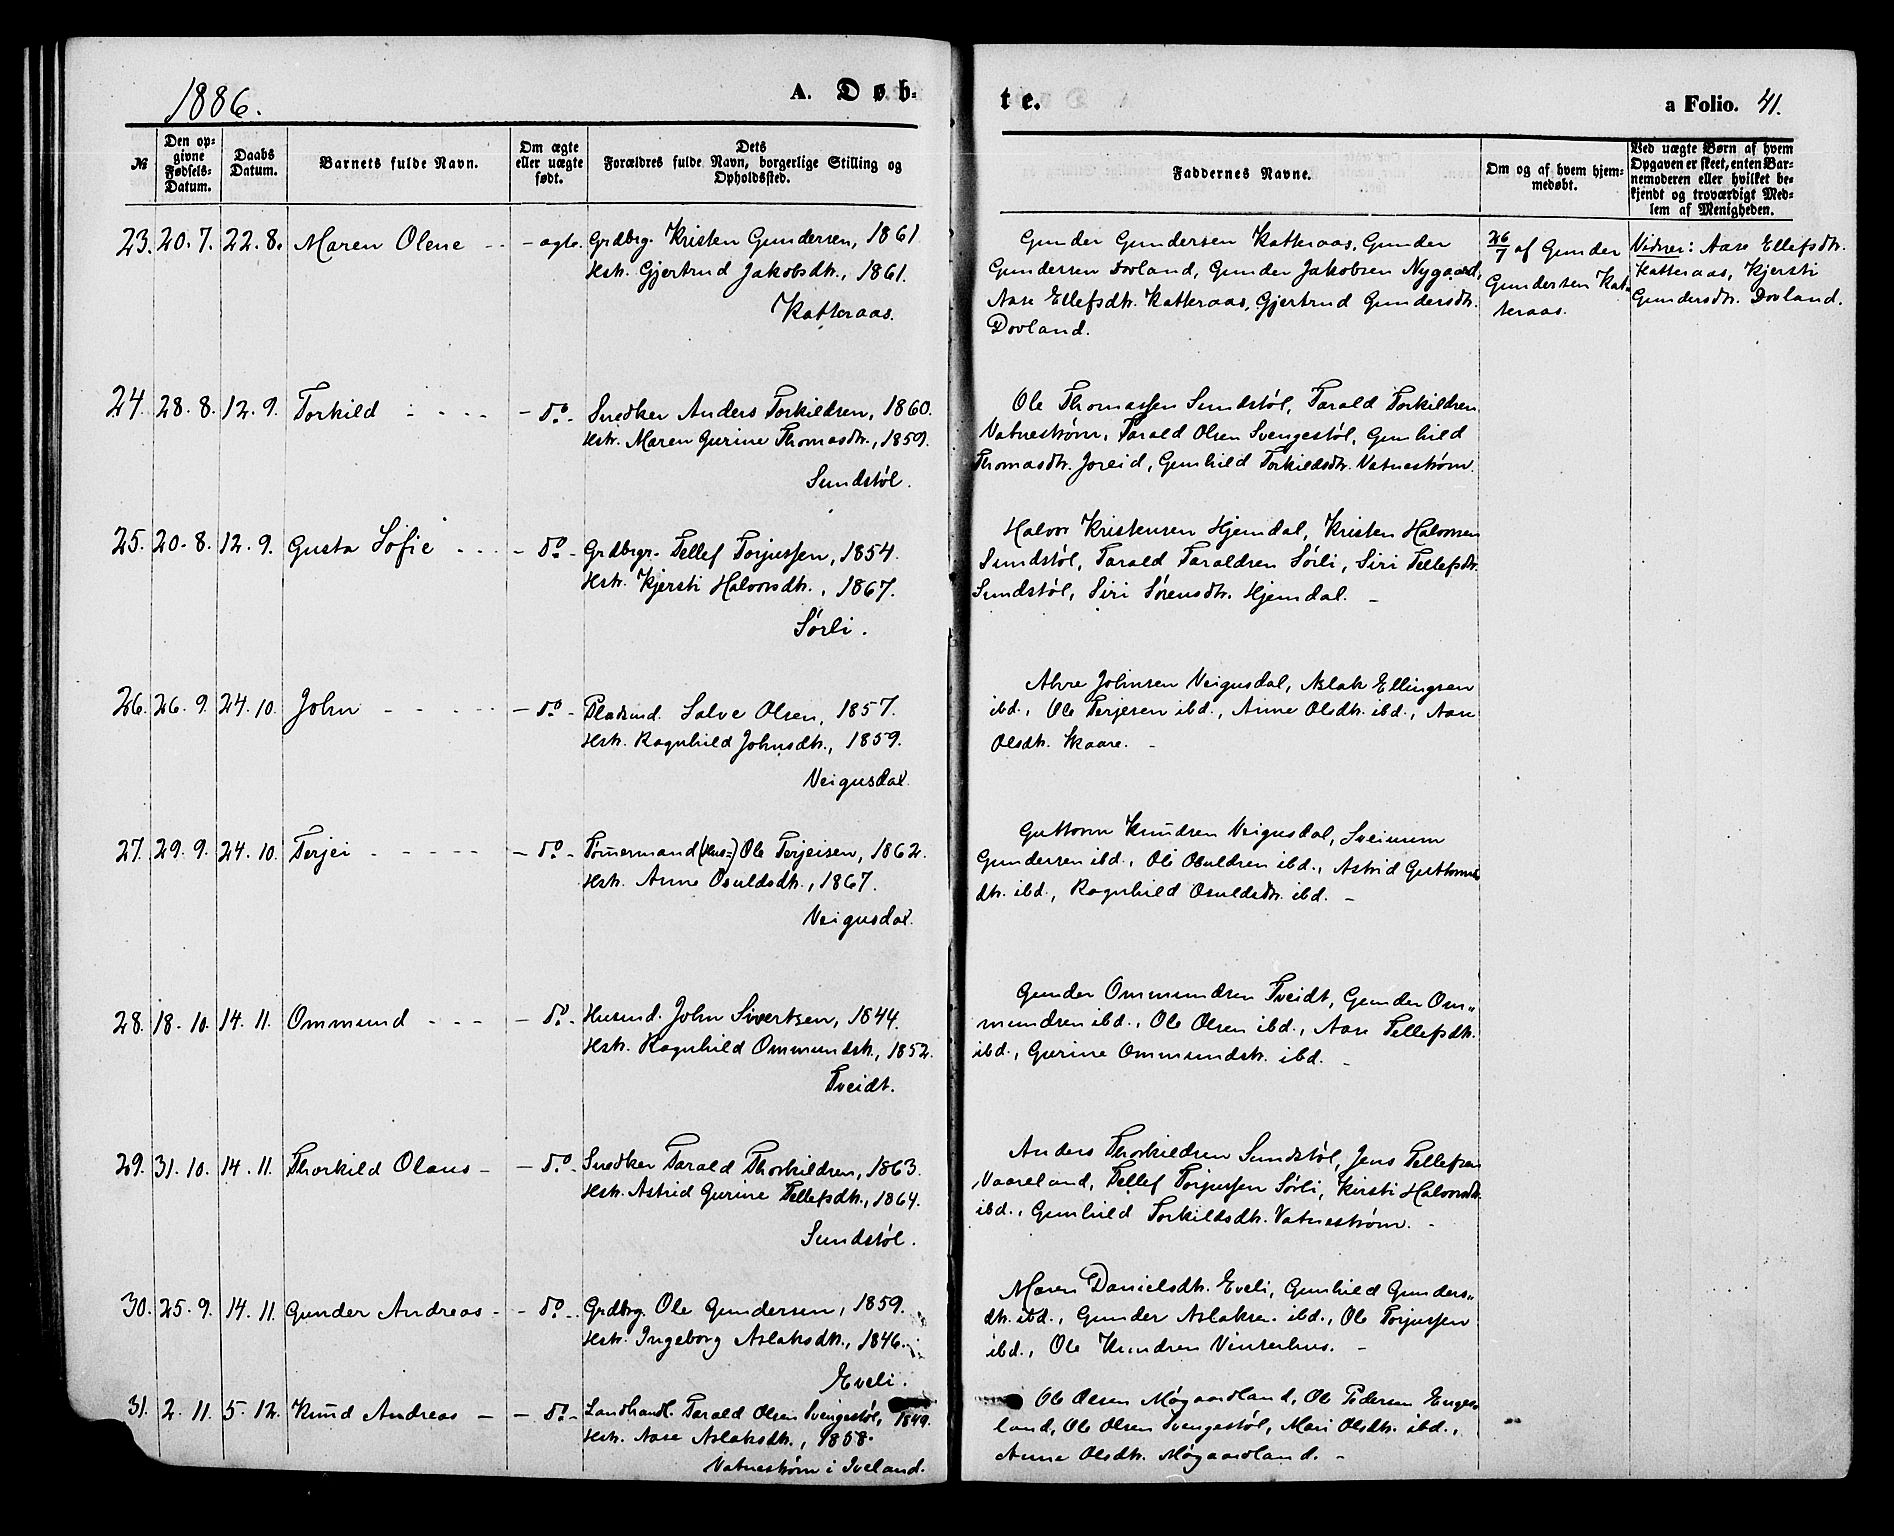 1886. A. Døb- te. a Folio. 41.
№
Den op-
givne
Fødsels-
Datum.
Daabs
Datum.
Barnets fulde Navn.
Om ægte
eller uægte
født.
Dets
Forældres fulde Navn, borgerlige Stilling og
Opholdssted.
Faddernes Navne.
Om og af hvem hjem-
medøbt.
Ved uægte Børn af hvem
Opgaven er skeet, enten Bar-
nemoderen eller hvilket be-
kjendt og troværdigt Med-
lem af Menigheden.
23. 20. 7. 22. 8. Maren Olene - - - ægte. Grdbrg. Kristen Gundersen, 1861
Hstr. Gjertrud Jakobsdtr., 1861.
Katteraas.
Gunder Gundersen Katteraas, Gunder
Gundersen Dovland, Gunder Jakobsen Nygaard,
Aase Ellefsdtr. Katteraas, Gjertrud Gundersdtr.
Dovland.
26/7 af Gunder
Gundersen Kat-
teraas.
Vidner: Aase Ellefsdtr.
Katteraas, Kjersti
Gundersdtr. Dovland.
24. 28. 8. 12. 9. Torkild - - - - - do - Snedker Anders Torkildsen, 1860.
Hstr. Maren Gurine Thomasdtr., 1859.
Sundstøl.
Ole Thomassen Sundstøl, Tarald Torkildsen
Vatnestrøm, Tarald Olsen Svengestøl, Gunhild
Thomasdtr. Joreid, Gunhild Torkildsdtr. Vatnestrøm.
25. 20. 8. 12. 9. Gusta Sofie - - - - do - Grdbrgr. Tellef Torjussen, 1854.
Hstr. Kjersti Halvorsdtr., 1867.
Sørli.
Halvor Kristensen Hjemdal, Kristen Halvorsen
Sundstøl, Tarald Taraldsen Sørli, Siri Tellefsdtr.
Sundstøl, Siri Sørensdtr. Hjemdal. -
26. 26. 9. 24. 10. John - - - - - do - Pladsmd. Salve Olsen, 1857.
Hstr. Ragnhild Johnsdtr., 1859.
Veigusdal.
Johnsen Veigusdal, Aslak Ellingsen
ibd., Ole Terjesen ibd., Anne Olsdtr. ibd., Aase
Olsdtr. Skaare. -
27. 29. 9. 24. 10. Terjei - - - - - do - Tømermand (Hus-) Ole Terjeisen, 1862.
Hstr. Anne Osuldsdtr., 1867.
Veigusdal.
Guttorm Knudsen Veigusdal, Sveinum
Gundersen ibd., Ole Osuldsen ibd., Astrid Guttorms
dtr. ibd., Ragnhild Osuldsdtr. ibd. -
28. 18. 10. 14. 11. Ommund - - - - do - Husmd. John Sivertsen, 1844.
Hstr. Ragnhild Ommundstr., 1852.
Tveidt.
Gunder Ommundsen Tveidt, Gunder Om-
mundsen ibd., Ole Olsen ibd., Aase Tellefsdtr.
ibd., Gurine Ommundstr. ibd. -
29. 31. 10. 14. 11. Thorkild Olaus - - do - Snedker Tarald Thorkildsen, 1863.
Hstr. Astrid Gurine Tellefsdtr., 1864.
Sundstøl.
Anders Thorkildsen Sundstøl, Jens Tellefsen
Vaareland, Tellef Torjussen Sørli, Kirsti Halvorsdtr.
ibd., Gunhild Torkildsdtr. Vatnestrøm. -
30. 25. 9. 14. 11. Gunder Andreas - - do - Grdbrg. Ole Gundersen, 1859.
Hstr. Ingeborg Aslaksdtr., 1846.
Eveli.
Maren Danielsdtr. Eveli, Gunhild Gunders-
dtr. ibd., Gunder Aslaksen ibd., Ole Torjussen
ibd., Ole Knudsen Vinterhus. -
31. 2. 11. 5. 12. Knud Andreas - - do - Landhandl. Tarald Olsen Svengestøl, 1849.
Hstr. Aase Aslaksdtr., 1858.
Vatnestrøm i Iveland.
Ole Olsen Møgaardland, Ole Pedersen Enges-
land, Ole Olsen Svengestøl, Mari Olsdtr. ibd.,
Anne Olsdtr. Møgaardland. -